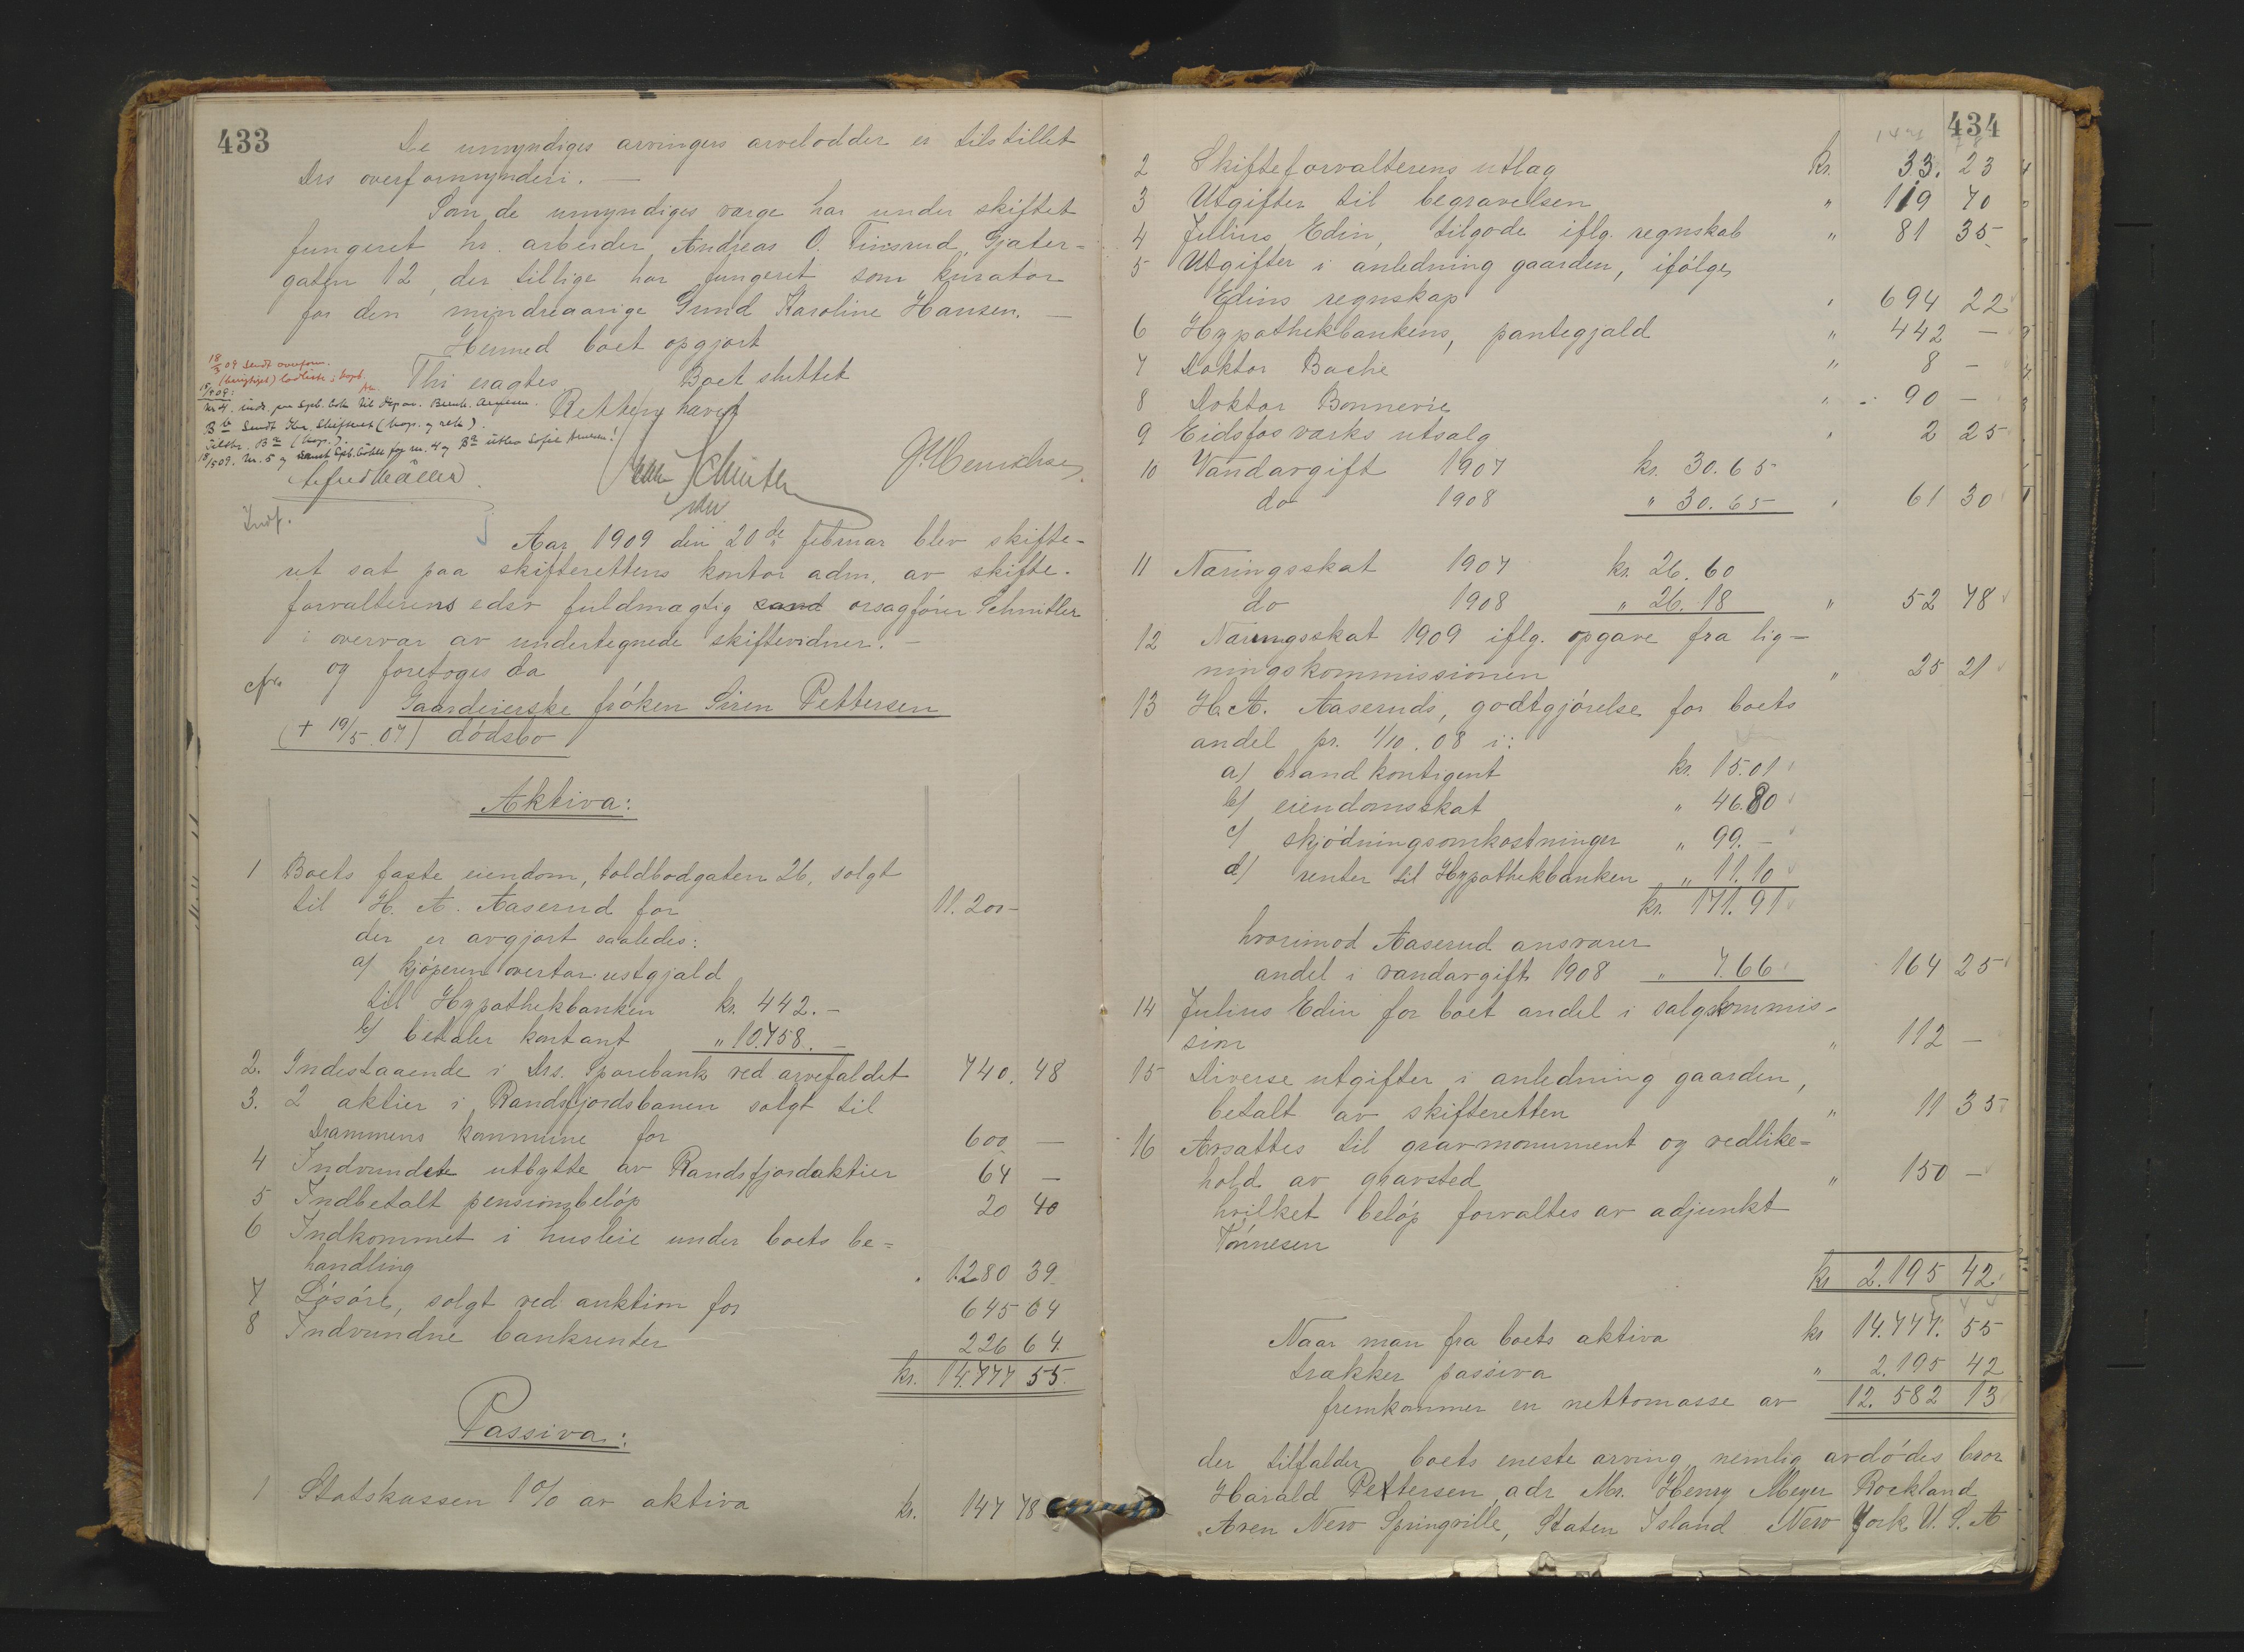 433
De umyndiges arvingers arvelodder er tilstillet
Drs overformynderi. —
Som de umyndiges værge har under skiftet
fungeret hr. arbeider Andreas O. Tinsrud, Gjæter-
gaten 12, der tillige har fungeret som kurator
for den mindreaarige Gund Karoline Hansen. —
Hermed boet opgjort
Thi eragtes
Boet sluttet
Retten hævet
18/3 09 sendt overform.
J. Henrichsen
Alfred Møller
Schnitler
Indf.
Aar 1909 den 20de februar blev skifte-
ret sat paa skifterettens kontor adm. av skifte-
forvalterens edsv fuldmægtig orsagfører Schnitler
i overvær av undertegnede skiftevidner. —
og foretoges da
Gaardeierske frøken Siren Pettersen
(+ 19/5.07) dødsbo
Aktiva:
1 Boets faste eiendom, toldbodgaten 26, solgt
til H. A. Aaserud for 11.200 —
der er avgjort saaledes:
a) kjøperen overtar ustgjæld
til Hypothekbanken kr. 442. —
b) betaler kontant " 10.758. —
2. Indestaaende i Drs. Sparebank ved arvefaldet 740. 48
3. 2 aktier i Randsfjordsbanen solgt til
Drammens kommune for 600 —
4 Indvundet utbytte av Randsfjordaktier 64 —
5 Indbetalt pensionsbeløp 20 40
6 Indkommet i husleie under boets be-
handling 1280 39
7 Løsøre, solgt ved auktion for 645 64
8 Indvundne bankrenter 226 64
kr. 14.777 55
Passiva:
1 Statskassen 1% av aktiva kr. 147 78
434
2 Skifteforvalterens utlæg Kr. 33. 23
3 Utgifter til begravelsen " 119 70
4 Julius Edin, tilgode iflg. regnskab " 81 35
5 Utgifter i anledning gaarden, ifølge
Edins regnskap " 694 22
6 Hypothekbankens, pantegjæld " 442 —
7 Doktor Bache " 8 —
8 Doktor Bonnevie " 90 —
9 Eidsfos værks utsalg " 2 25
10 Vandavgift 1907 kr. 30.65
do 1908 " 30.65 " 61 30
11 Næringsskat 1907 kr. 26.60
do 1908 " 26.18 " 52 78
12 Næringsskat 1909 iflg. opgave fra lig-
ningskommissionen " 25 21
13 H. A. Aaseruds, godtgjørelse for boets
andel pr. 1/10.08 i:
a) brandkontigent kr. 15.01
b) eiendomsskat " 46.80
c) skjødningsomkostninger " 99. —
d) renter til Hypothekbanken " 11.10
kr. 171.91
hvorimod Aaserud ansvarer
andel i vandavgift 1908 " 7.66 164 25
14 Julius Edin for boet andel i salgskommis-
sion " 112 —
15 Diverse utgifter i anledning gaarden,
betalt av skifteretten " 11 35
16 Avsættes til gravmonument og vedlike-
hold av gravsted " 150 —
hvilket beløp forvaltes av adjunkt
Tønnesen
kr 2.195 42
Naar man fra boets aktiva kr 14.777. 55
trækker passiva " 2.195 42
fremkommer en nettomasse av 12.582 13
der tilfalder boets eneste arving, nemlig avdødes bror
Harald Pettersen, adr Mr. Henry Meyer Rockland
Aven New Springville, Staten Island New York U. S. A